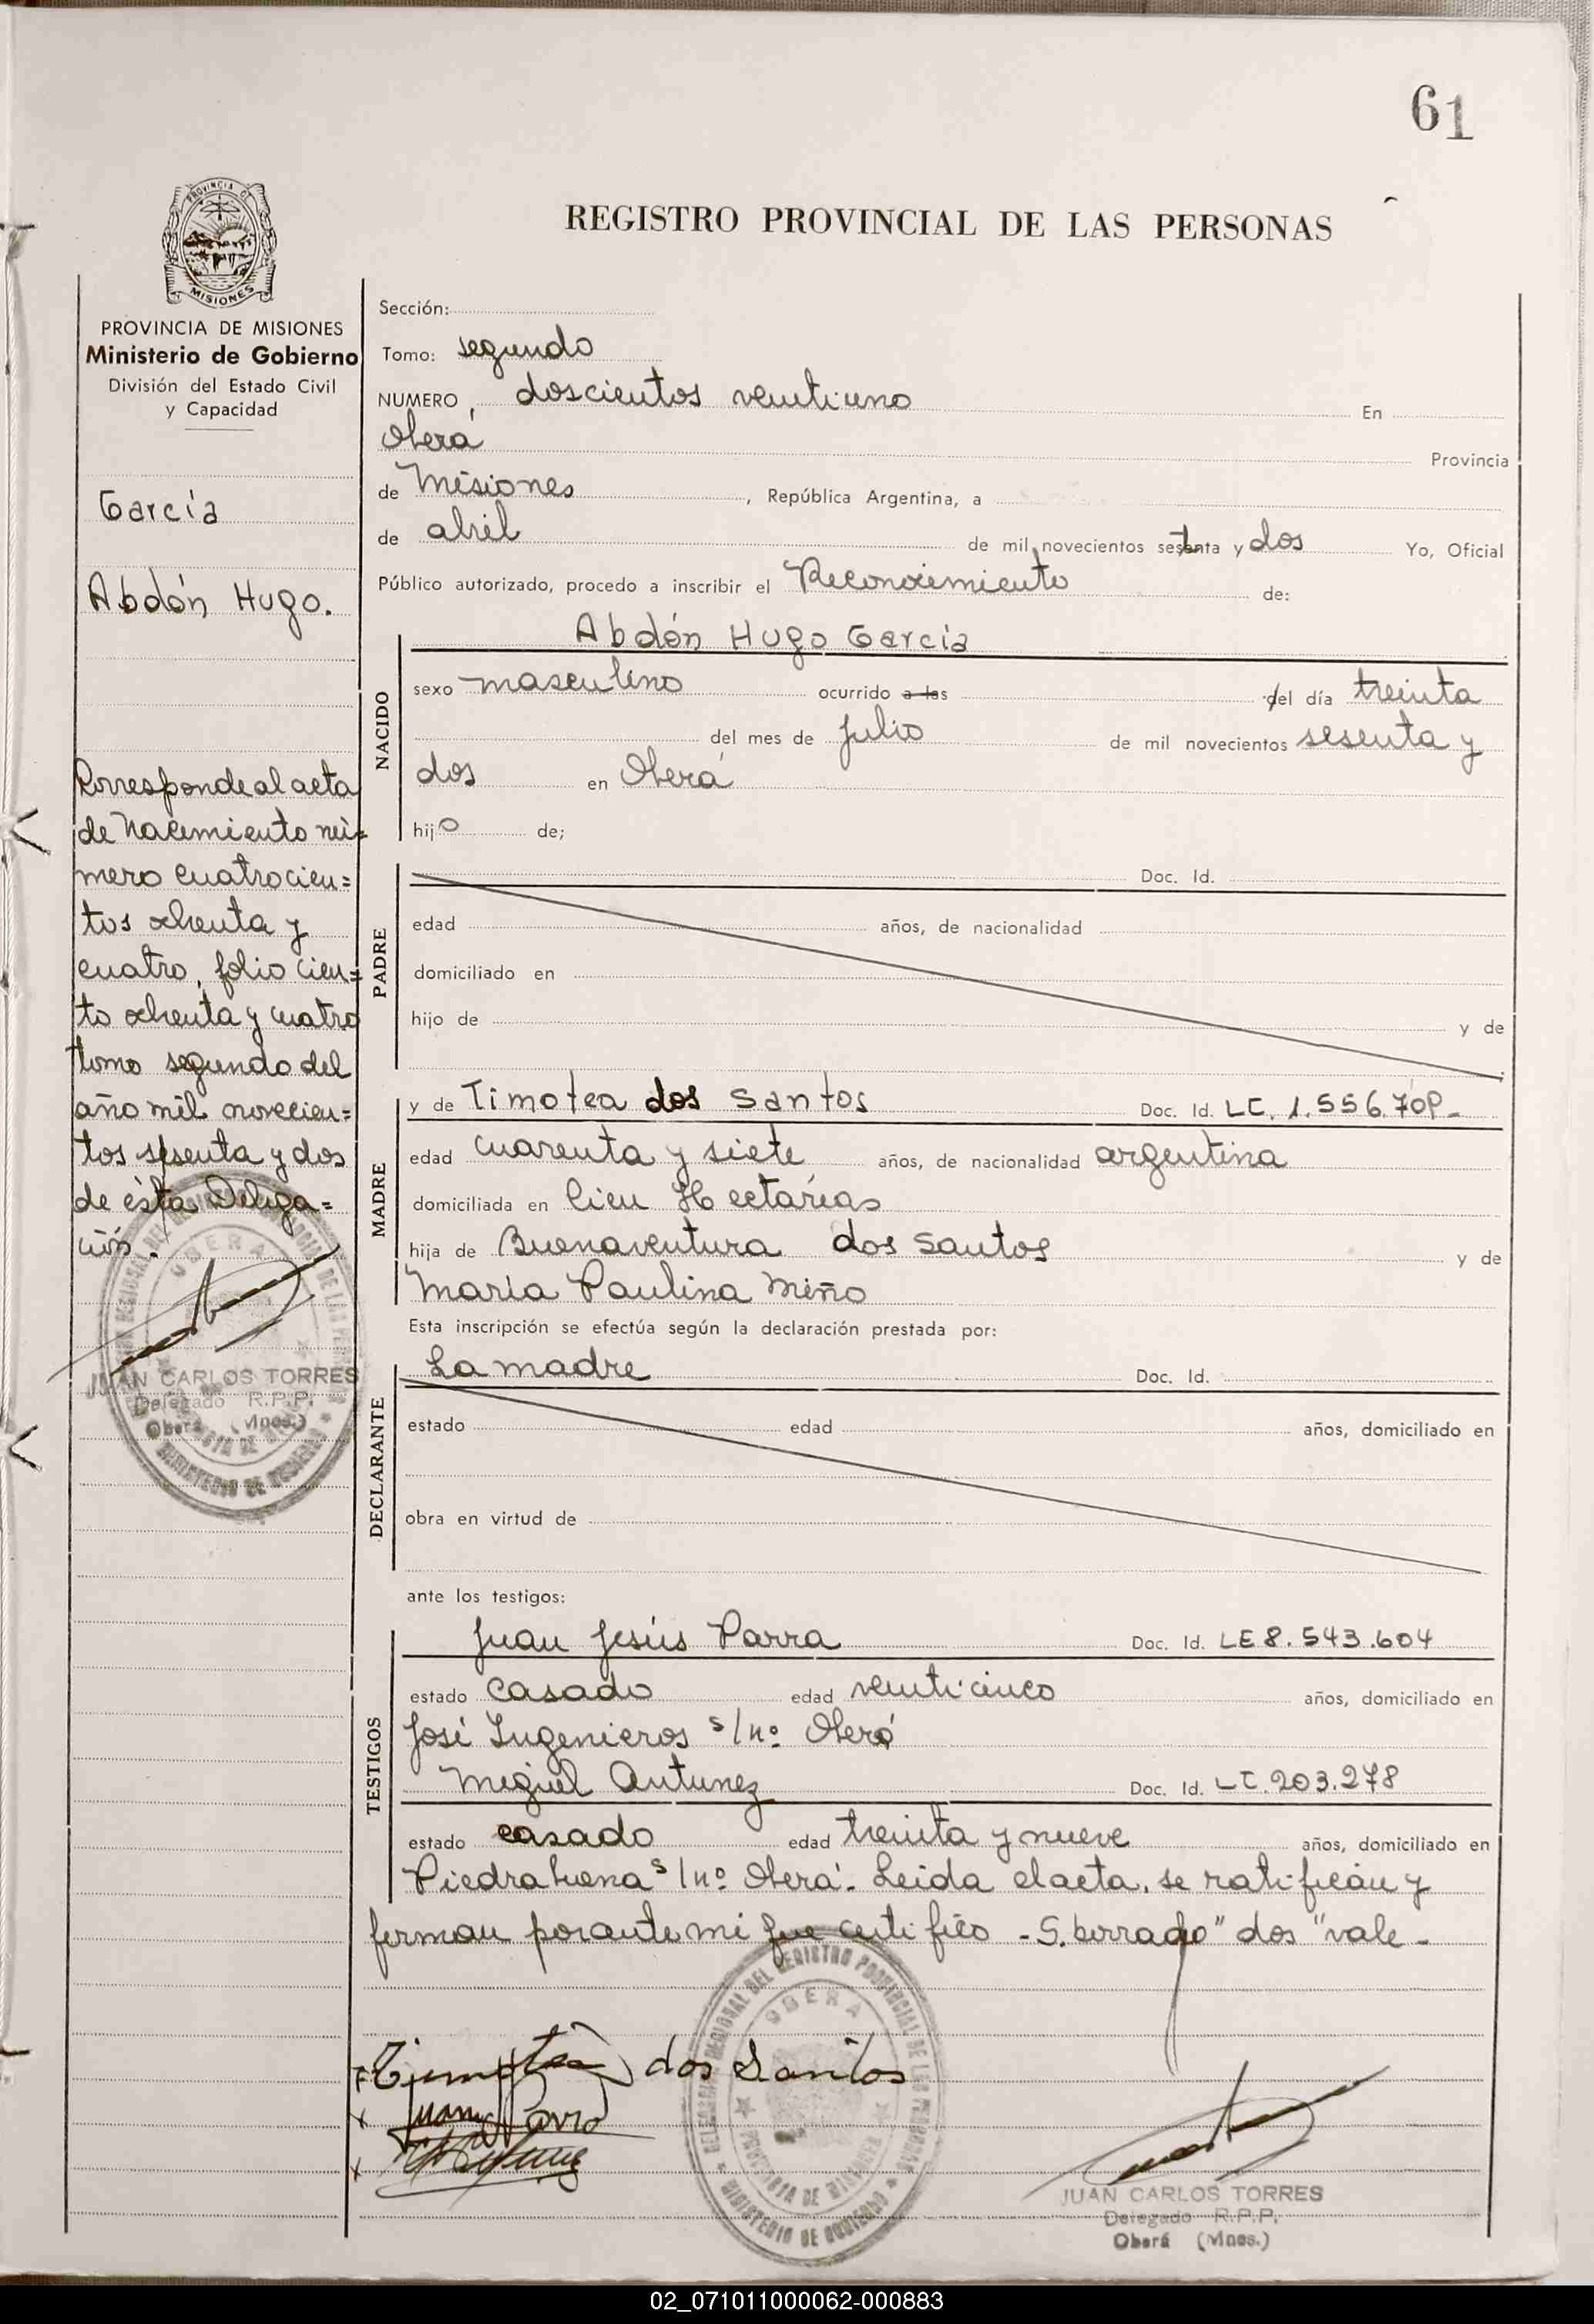 61
REGISTRO PROVINCIAL DE LAS PERSONAS
PROVINCIA DE MISIONES
Ministerio de Gobierno
División del Estado Civil
y Capacidad
García
Abdón Hugo.
Corresponde al acta
de Nacimiento nú=
mero cuatrocien=
tos ochenta y
cuatro, folio cien=
to ochenta y cuatro
tomo segundo del
año mil novecien=
tos sesenta y dos
de ésta Delega=
ción.
JUAN CARLOS TORRES
Delegado R.P.P.
Oberá (Mnes.)
Sección:
Tomo: segundo
NUMERO, doscientos veintiuno En
Oberá Provincia
de Misiones, República Argentina, a
de abril de mil novecientos setenta y dos Yo, Oficial
Público autorizado, procedo a inscribir el Reconocimiento de:
NACIDO
Abdón Hugo García
sexo masculino ocurrido a las del día treinta
del mes de julio de mil novecientos sesenta y
dos en Oberá
hijo de;
PADRE
Doc. Id.
edad años, de nacionalidad
domiciliado en
hijo de y de
MADRE
y de Timotea dos Santos Doc. Id. LC. 1.556.70P_
edad cuarenta y siete años, de nacionalidad argentina
domiciliada en Cien Hectáreas
hija de Buenaventura dos Santos y de
María Paulina Miño
Esta inscripción se efectúa según la declaración prestada por:
DECLARANTE
La madre Doc. Id.
estado edad años, domiciliado en
obra en virtud de
ante los testigos:
TESTIGOS
Juan Jesús Parra Doc. Id. LE 8.543.604
estado casado edad veinticinco años, domiciliado en
José Ingenieros s/nº Oberá
Miguel Antunez Doc. Id. LC.203.278
estado casado edad treinta y nueve años, domiciliado en
Piedrabuena s/nº Oberá. Leida el acta, se ratifican y
firman por ante mi que certifico - S. borrado "dos" vale -
Timotea dos Santos
Juan J Parra
OBERA
PROVINCIA DE MISIONES
MINISTERIO DE GOBIERNO
JUAN CARLOS TORRES
Delegado R.P.P.
Oberá (Mnes.)
02_071011000062-000883